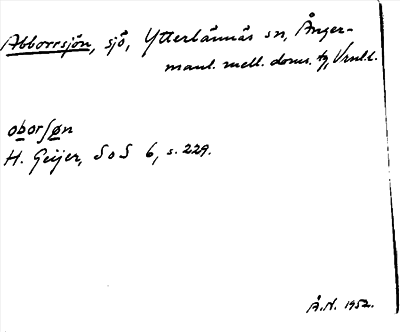 Abborrsjön, sjö, Ytterlännäs sn, Ånger-
manl. mell. doms. tg, Vrnl.l.
oborsøn
H. Geijer, SoS 6, s. 229.
Å.N. 1952.